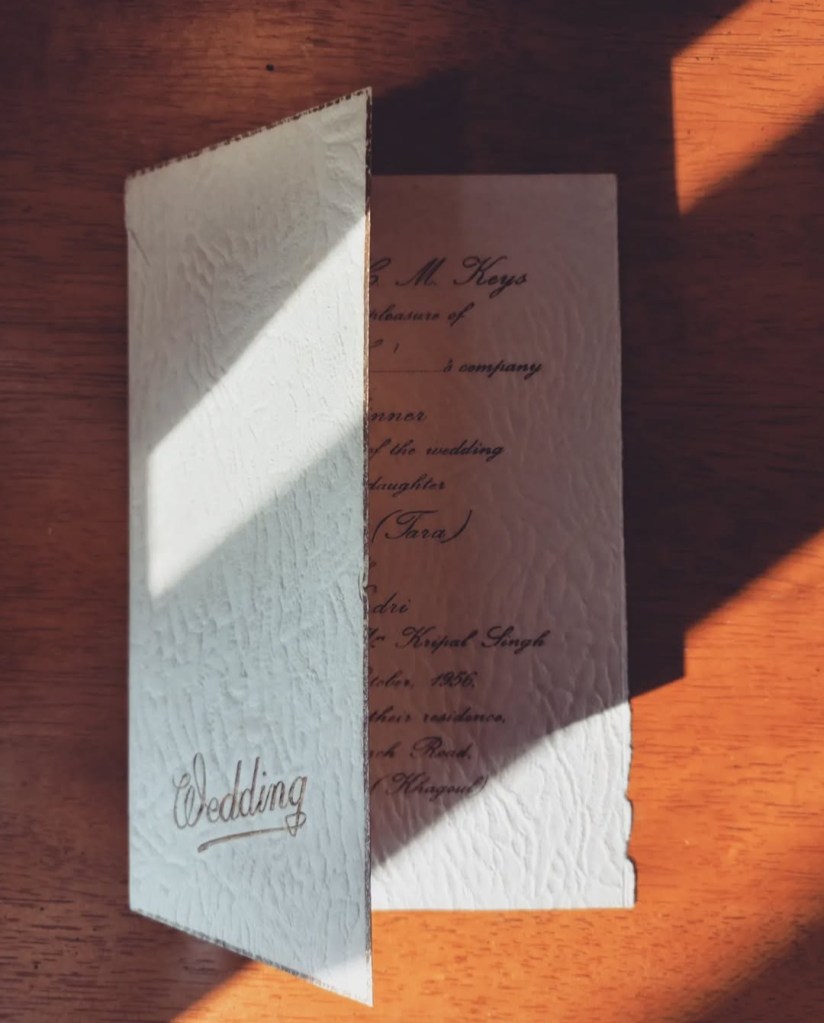 Wedding
C. M. Keys
pleasure of
's company
nner
of the wedding
daughter
(Tara)
dri
Kripal Singh
tober, 1956,
their residence,
rch Road,
t Khagoul)